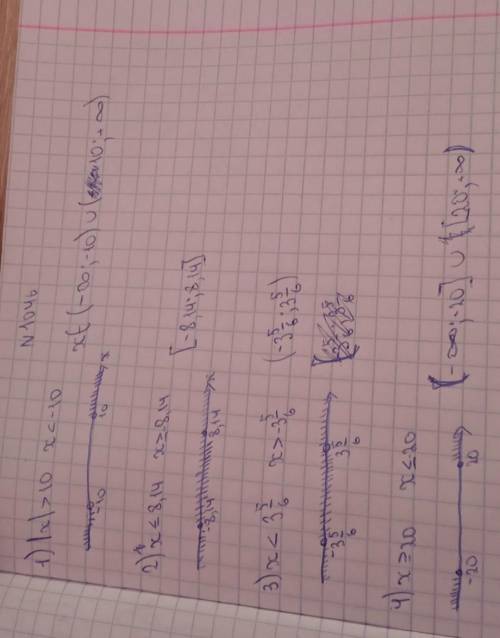 N 1046
1) |x| > 10 x < -10
x ∈ (-∞; -10) ∪ (10; +∞)
-10 10 x
2) x ≤ 8,14 x ≥ -8,14
[-8,14; 8,14]
-8,14 8,14 x
3) x < 3 5/6 x > -3 5/6
(-3 5/6; 3 5/6)
-3 5/6 3 5/6
4) x ≥ 20 x ≤ 20
(-∞; -20] ∪ [20; +∞)
-20 20